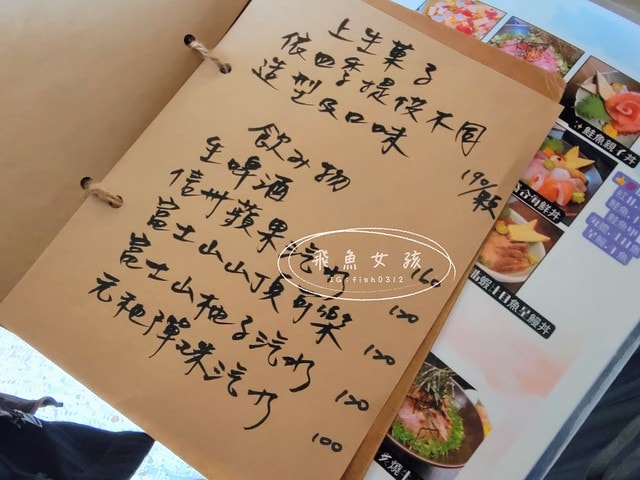 上生菓子
依四季提供不同
造型及口味
190/顆
飲み物
生啤酒 160
信州蘋果汽水 120
富士山山頂可樂 120
富士山柚子汽水 120
元祖彈珠汽水 100
飛魚女孩
IG:fish0312
鮭魚親子丼
旬鮮丼
魚星鰻丼
炙燒牛